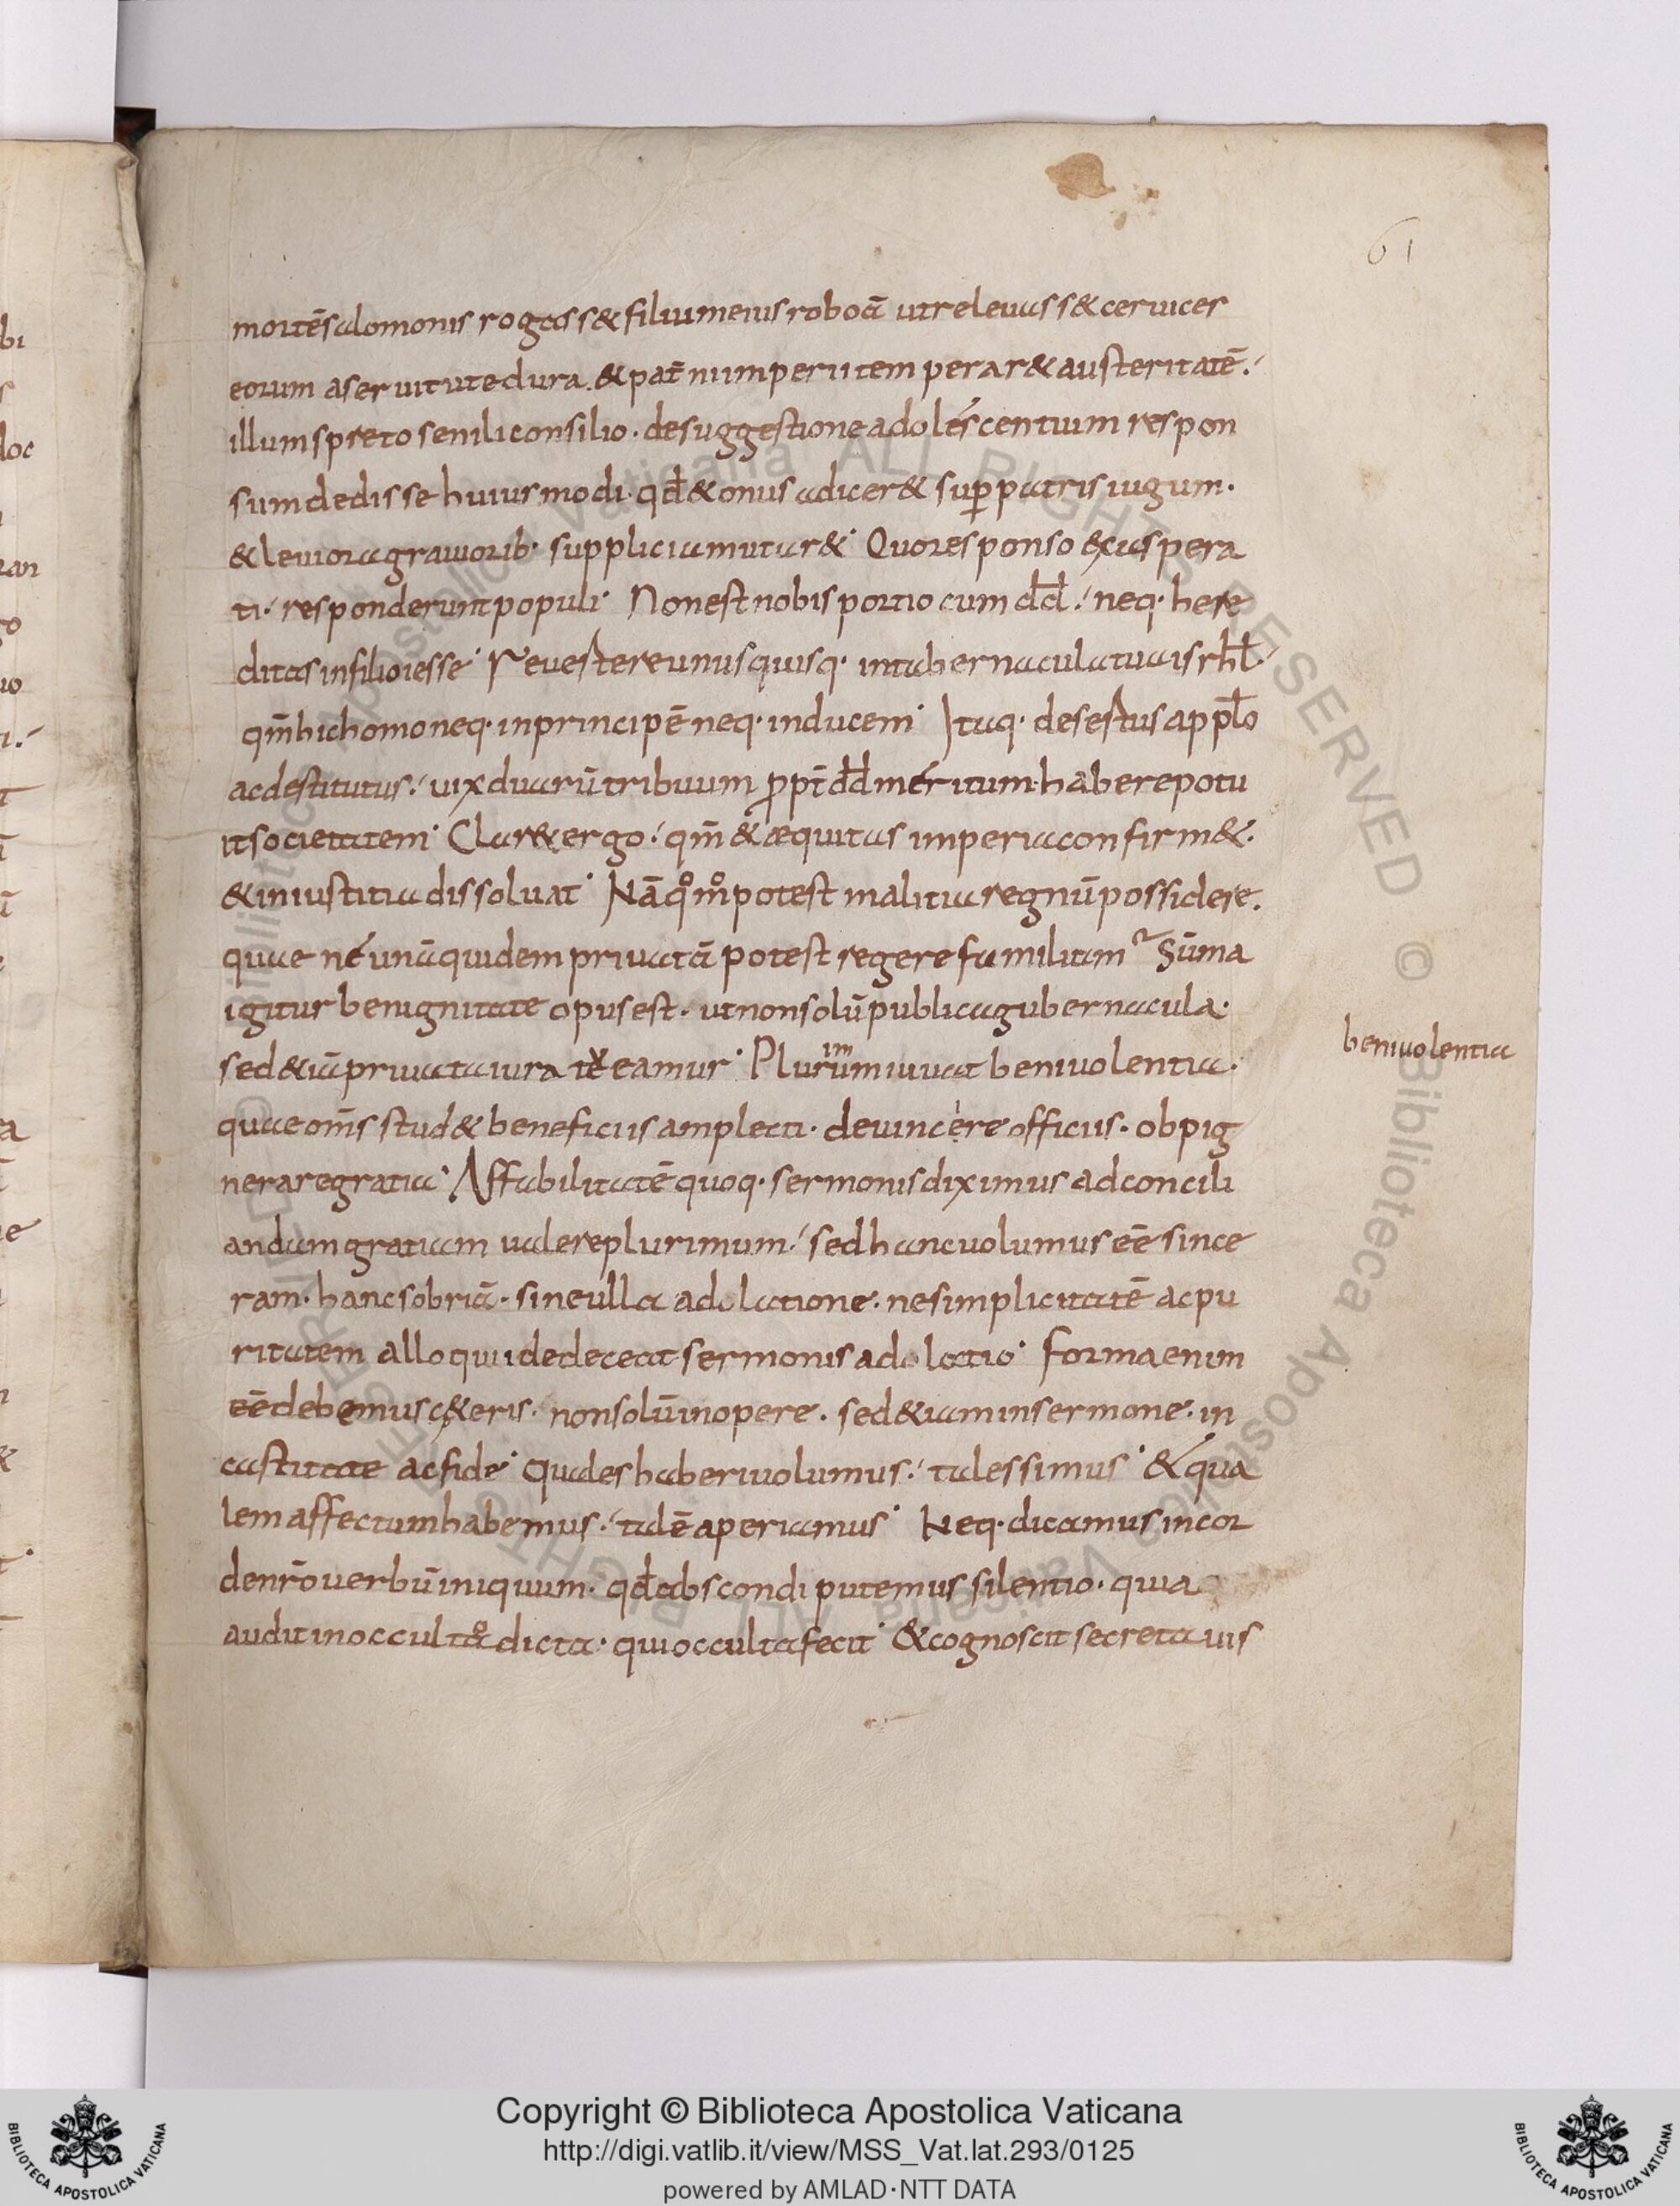 61
mortē salomonis rogass& filium eius roboā ut relevass& cervices
eorum a servitute dura. & pat̄ni imperii temperar& austeritatē.
illum spreto senili consilio. de suggestione adoléscentium respon
sum dedisse huius modi. qđ & onus adicer& sup̄ patris iugum.
& leviora gravorib. supplicia mutar&. Quo responso exaspera
ti. responderunt populi. Non est nobis portio cum dd̄. neq. here
ditas in filio iesse. revertere unusquisq. in tabernacula tua isrl̄.
qm̄ hic homo neq. in principē neq. in ducem. Itaq. desertus a pplo
ac destitutus. vix duarū tribuum ppt̄ dd̄ méritum. habere potu
it societatem. Clar& ergo. qm̄ & æquitas imperia confirm&.
& iniustitia dissoluat. Nā qomo potest malitia regnū possidere.
quae né unā quidem privatā potest regere familiam. Sūma
igitur benignitate opus est. ut non solū publica gubernacula.
sed &iā privata iura tveamur. Plurimum iuvat benivolentia.
benivolentia
quae om̄s stud& beneficiis amplecti. devincere officiis. obpig
nerare gratia. Affabilitatē quoq. sermonis diximus ad concili
andam gratiam valere plurimum. sed hanc volumus eē since
ram. hanc sobriā. sine ulla adolatione. ne simplicitatē ac pu
ritatem alloquii dedeceat sermonis adolatio. forma enim
eē debemus c&eris. non solū in opere. sed &iam in sermone. in
castitate ac fide. Quales haberi volumus. tales simus. & qua
lem affectum habemus. talē aperiamus. Neq. dicamus in cor
de nr̄o verbū iniquum. qđ abscondi putemus silentio. quia
audit in occulto dicta. qui occulta fecit. & cognoscit secreta vis
Copyright © Biblioteca Apostolica Vaticana
http://digi.vatlib.it/view/MSS_Vat.lat.293/0125
powered by AMLAD•NTT DATA
BIBLIOTECA APOSTOLICA VATICANA
BIBLIOTECA APOSTOLICA VATICANA